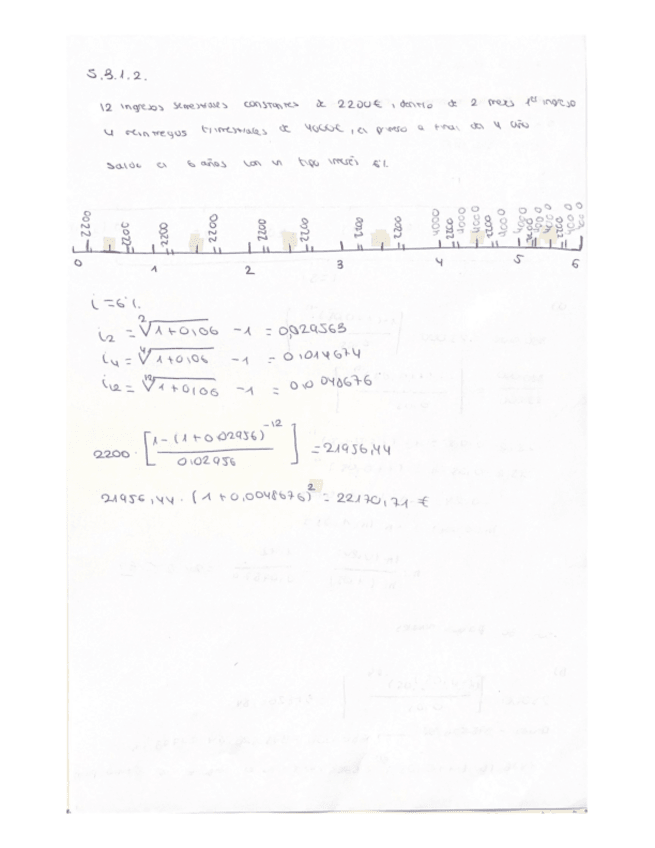 5.3.1.2.
12 ingresos semestrales constantes de 2200€, dentro de 2 meses 1er ingreso
4 reintegros trimestrales de 4000€, el primero a final del 4 año
Saldo a 6 años con un tipo interés 6%
2200 2200 2200 2200 2200 2200 2200 2200 4000 2200 4000 4000 2200 4000
0 1 2 3 4 5 6
i = 6%
i2 = ²√1+0,06 - 1 = 0,029563
i4 = ⁴√1+0,06 - 1 = 0,014674
i12 = ¹²√1+0,06 - 1 = 0,0048676
2200 · [1-(1+0,02956)^-12 / 0,02956] = 21956,44
21956,44 · (1+0,0048676)² = 22170,71 €